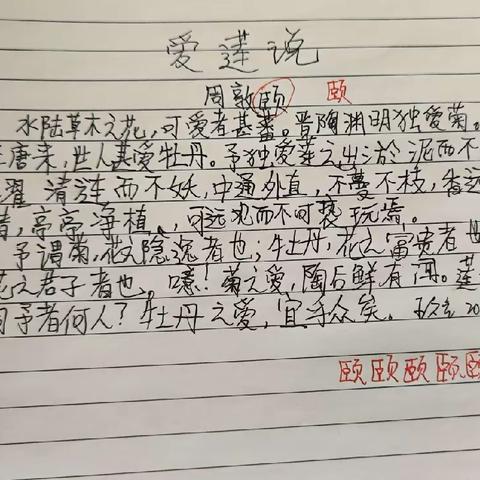 爱莲说
周敦颐 颐
水陆草木之花,可爱者甚蕃。晋陶渊明独爱菊。
唐来,世人甚爱牡丹。予独爱莲之出淤泥而不
濯清涟而不妖,中通外直,不蔓不枝,香远
清,亭亭净植,可远观而不可亵玩焉。
予谓菊,花之隐逸者也;牡丹,花之富贵者也
花之君子者也。噫!菊之爱,陶后鲜有闻。莲
同予者何人?牡丹之爱,宜乎众矣。
颐颐颐颐颐